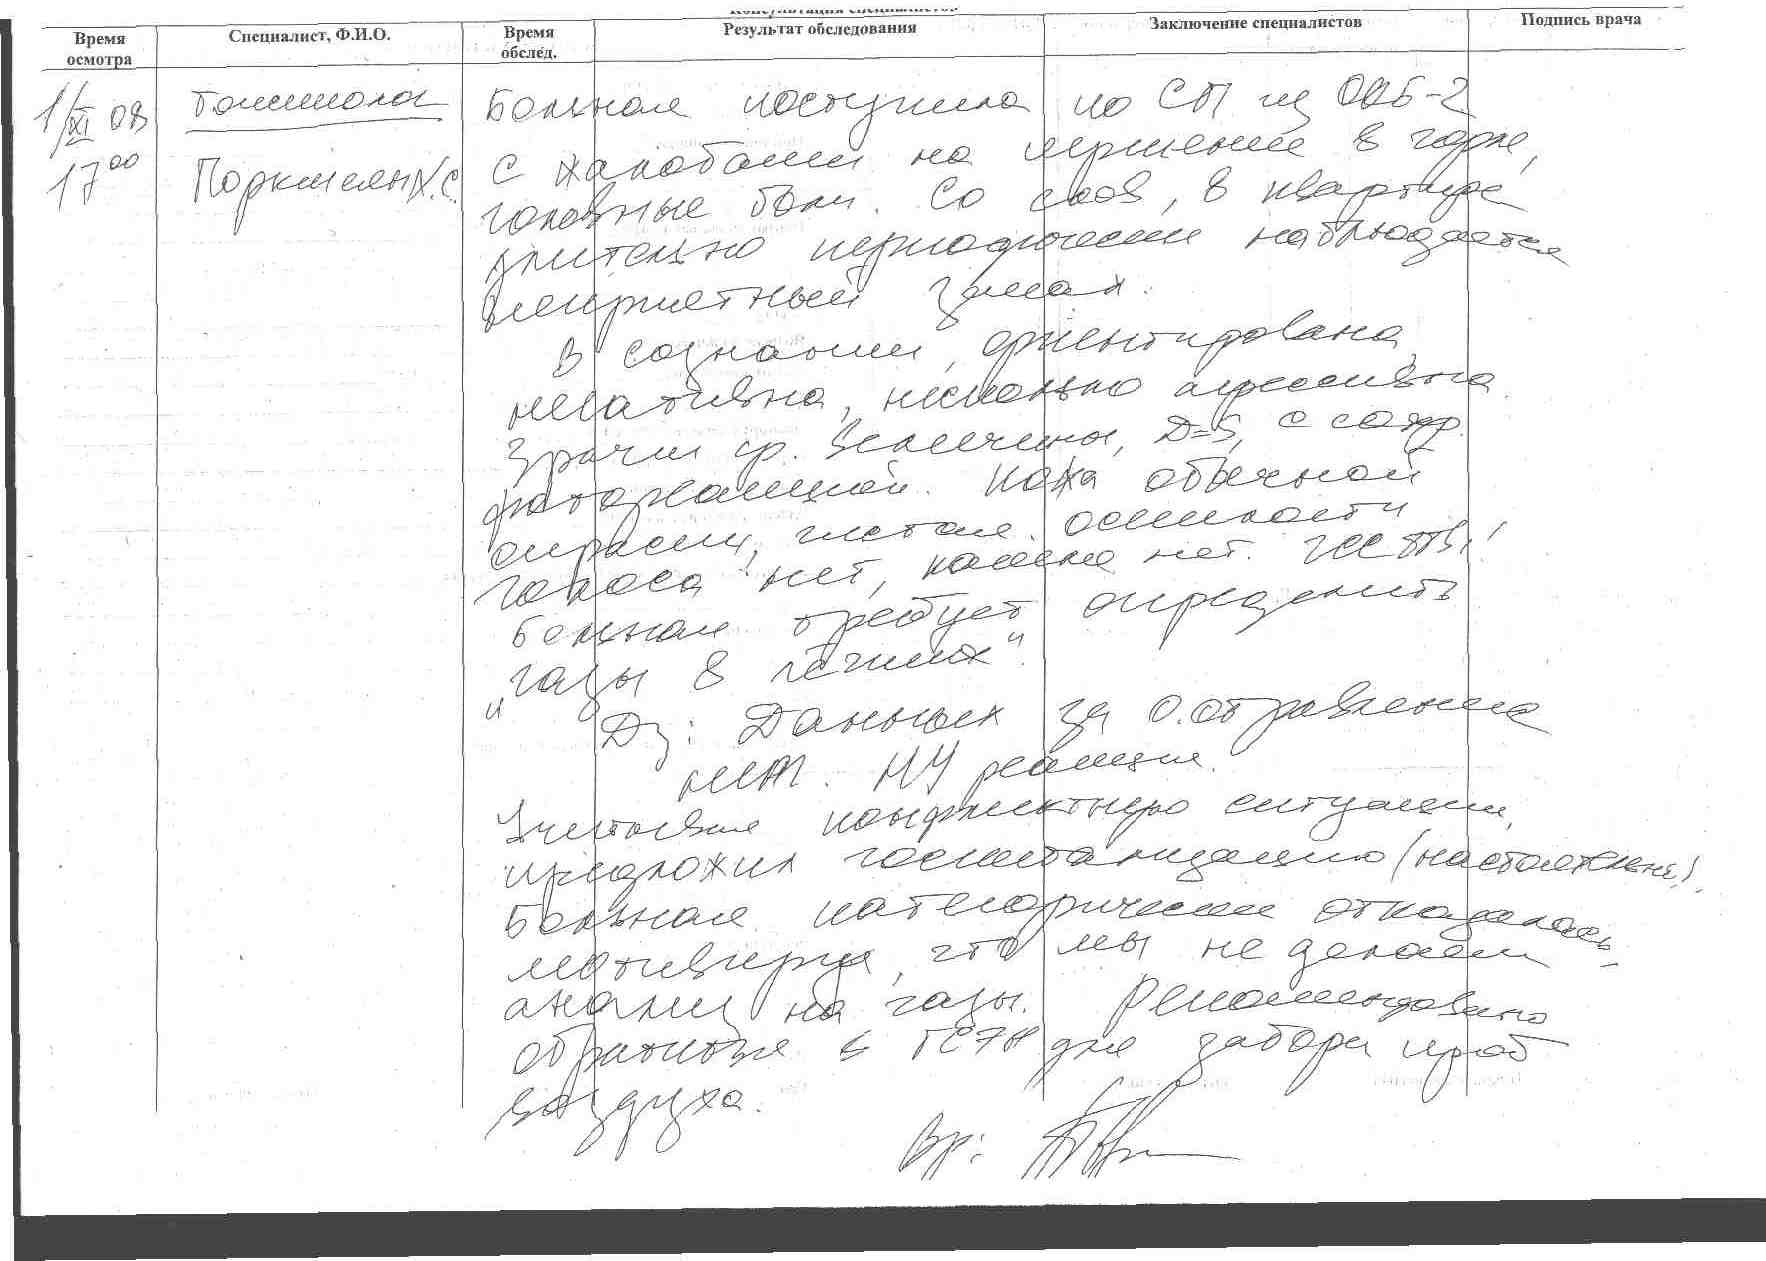 Консультация специалистов
Время осмотра
Специалист, Ф.И.О.
Время обслед.
Результат обследования
Заключение специалистов
Подпись врача
1/XI 08
17 00
Токсиколог
Больная поступила по СП из ООБ-2
с жалобами на першение в горле,
головные боли. Со слов, в квартире
длительно периодически наблюдается
неприятный запах.
В сознании, ориентирована,
негативна, несколько агрессивна.
Зрачки ср. величины, D=S, с сохр.
фотореакцией. Кожа обычной
окраски, чистая. Осиплости
голоса нет, кашля нет.
Больная требует определить
"газы в лёгких".
Дз: Данных за о. отравление
нет. реакция.
Учитывая конфликтную ситуацию,
предложил госпитализацию (настоятельно).
Больная категорически отказалась,
мотивируя, что мы не делаем
анализ на газы. Рекомендовано
обратиться в ГСЭН для забора проб
воздуха.
Вр: